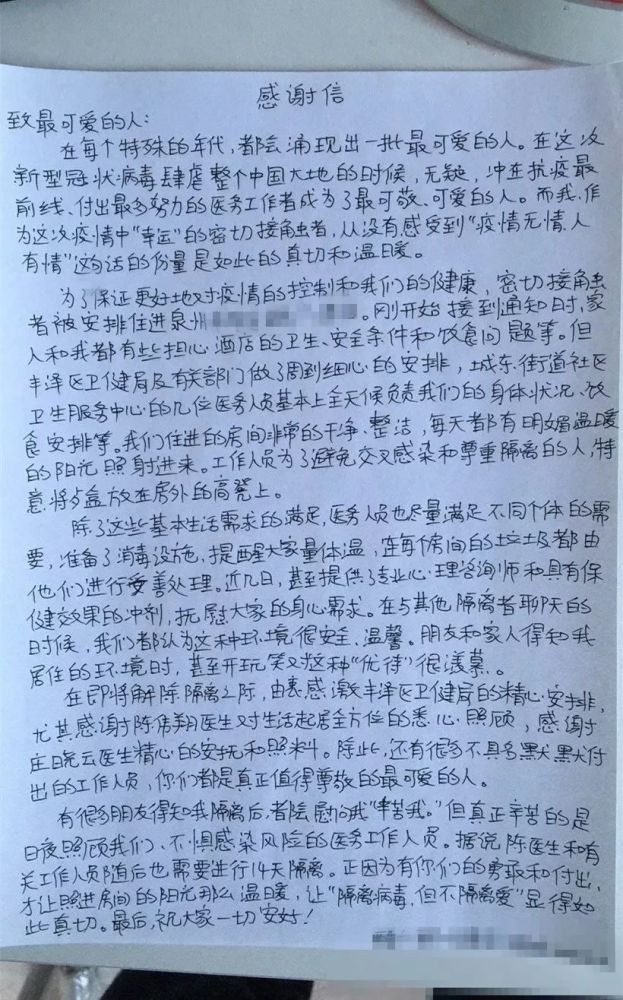 感谢信
致最可爱的人:
在每个特殊的年代,都会涌现出一批最可爱的人。在这次
新型冠状病毒肆虐整个中国大地的时候,无疑,冲在抗疫最
前线、付出最多努力的医务工作者成为了最可敬、可爱的人。而我,作
为这次疫情中“幸运”的密切接触者,从没有感受到“疫情无情人
有情”这句话的份量是如此的真切和温暖。
为了保证更好地对疫情的控制和我们的健康,密切接触
者被安排住进泉州。刚开始接到通知时,家
人和我都有些担心酒店的卫生、安全条件和饮食问题等。但
丰泽区卫健局及有关部门做了周到细心的安排,城东街道社区
卫生服务中心的几位医务人员基本上全天候负责我们的身体状况、饮
食安排等。我们住进的房间非常的干净、整洁,每天都有明媚温暖
的阳光照射进来。工作人员为了避免交叉感染和尊重隔离的人,特
意将饭盒放在房外的高凳上。
除了这些基本生活需求的满足,医务人员也尽量满足不同个体的需
要,准备了消毒设施,提醒大家量体温,连每个房间的垃圾都由
他们进行妥善处理。近几日,甚至提供了专业心理咨询师和具有保
健效果的冲剂,抚慰大家的身心需求。在与其他隔离者聊天的
时候,我们都认为这种环境很安全、温馨。朋友和家人得知我
居住的环境时,甚至开玩笑对这种“优待”很羡慕。
在即将解除隔离之际,由衷感激丰泽区卫健局的精心安排,
尤其感谢陈伟翔医生对生活起居全方位的悉心照顾,感谢
庄晓云医生精心的安抚和照料。除此,还有很多不具名默默付
出的工作人员,你们都是真正值得尊敬的最可爱的人。
有很多朋友得知我隔离后,都会慰问我“辛苦我。”但真正辛苦的是
日夜照顾我们、不惧感染风险的医务工作人员。据说陈医生和有
关工作人员随后也需要进行14天隔离。正因为有你们的勇敢和付出,
才让照进房间的阳光那么温暖,让“隔离病毒,但不隔离爱”显得如
此真切。最后,祝大家一切安好!